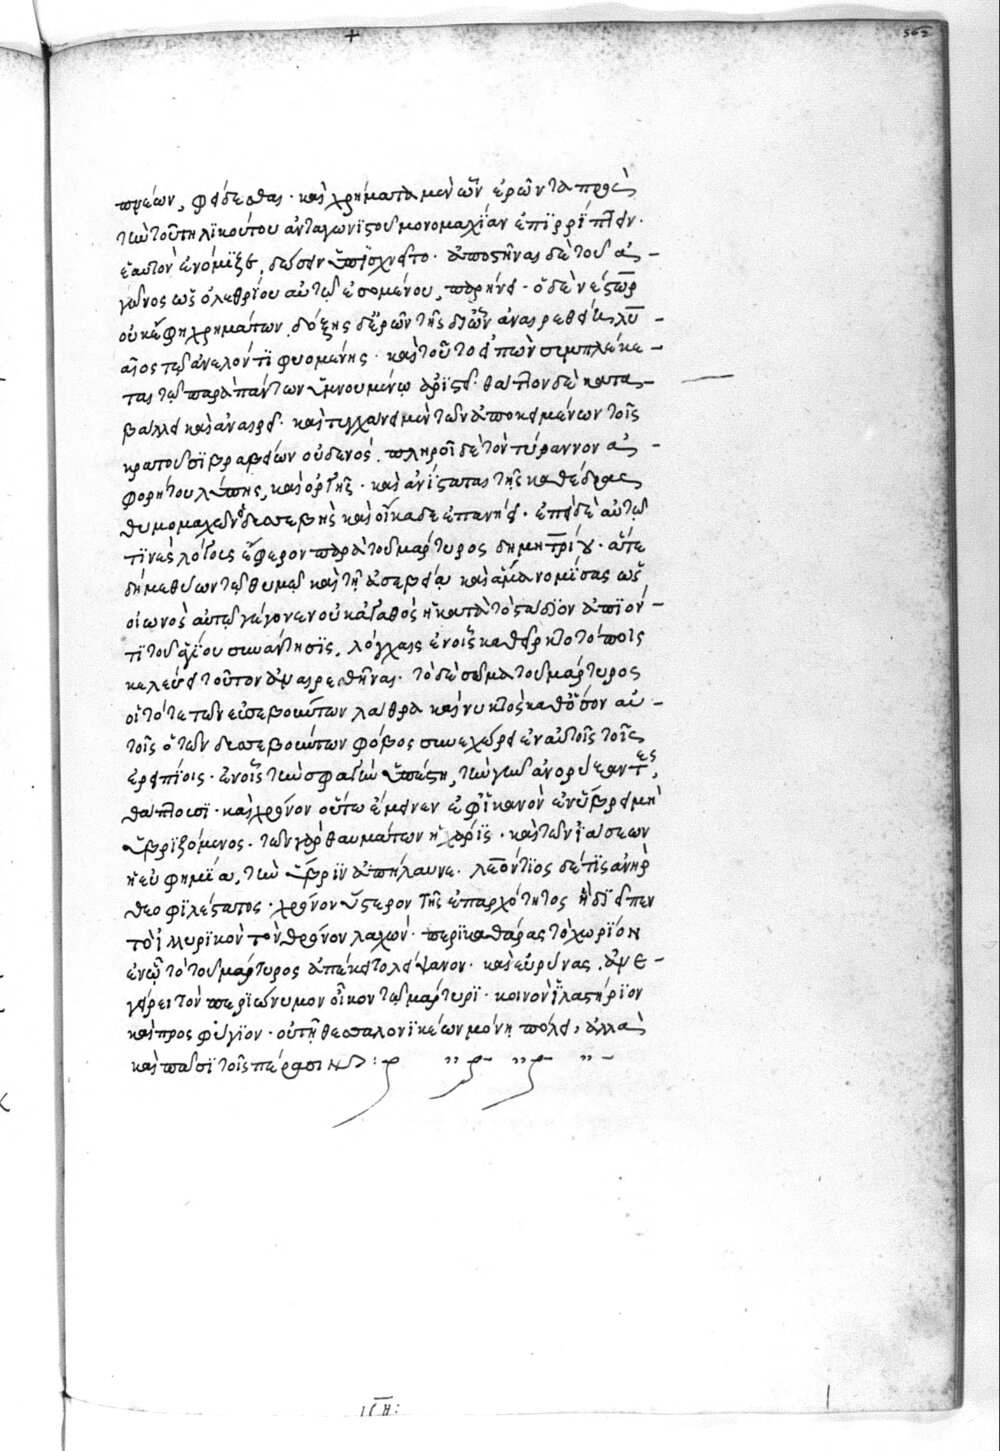 562
φείδεσθαι· καὶ χρήματα μὲν ὧν ἐρῶντα πρὸς
τὴν τοῦ τηλικούτου ἀνταγωνιστοῦ μονομαχίαν ἐπϊρρίπτειν·
ἑαυτὸν ἐνόμϊζε, δώσειν ὑπϊσχνεῖτο· ἀποστῆναι δὲ τοῦ ἀ-
γῶνος ὡς ὀλεθρίου αὐτῷ ἐσομένου, παρῄνει· ὁ δὲ νέστωρ
οὐκ ἔφη χρημάτων, δόξης δὲ ἐρῶν τῆς
τῷ ἀνελόντϊ φυομένης· καὶ τοῦτο εἰπὼν συμπλέκε-
ται τῷ παρὰ πάντων ὑμνουμένῳ ἀρϊστεῖ· θᾶττον δὲ κατα-
βάλλει καὶ ἀναιρεῖ· καὶ τυγχάνει μὲν τῶν ἀποκειμένων τοῖς
κρατοῦσϊ βραβείων οὐδενός, πληροῖ δὲ τὸν τύραννον ἀ-
φορήτου λύπης, καὶ ὀργῆς· καὶ ἀνίσταται τῆς καθέδρας
θυμομαχῶν ὁ δυσσεβὴς καὶ οἴκαδε ἐπανῄει· ἐπεὶ δὲ αὐτῷ
τϊνὲς λόγους ἔφερον παρὰ τοῦ μάρτυρος δημητρίου· ἅτε
δὴ μεθύων τῷ θυμῷ καὶ τῇ ἀσεβείᾳ καὶ ἅμα νομίσας ὡς
οἰωνὸς αὐτῷ γέγονεν οὐκ ἀγαθὸς ἡ κατὰ τὸ στάδϊον ἀπϊόν-
τϊ τοῦ ἁγίου συνάντησϊς, λόγχαις ἐν οἷς καθεῖρκτο τόποις
κελεύει τοῦτον ἀναιρεθῆναι· τὸ δὲ σῶμα τοῦ μάρτυρος
οἱ τότε τῶν εὐσεβούντων λάθρα καὶ νυκτὸς καθ' ὅσον αὐ-
τοῖς ὁ τῶν δυσσεβούντων φόβος συνεχώρει ἐν αὐτοῖς τοῖς
ἐρειπίοις· ἐν οἷς τὴν σφαγὴν ὑπέστη, τὴν γῆν ἀνορύξαντες,
θάπτουσϊ· καὶ χρόνον οὕτω ἔμεινεν ἐφ' ἱκανὸν ἐν ὕβρει μὴ
ὑβρϊζόμενος· τῶν γὰρ θαυμάτων ἡ χάρϊς· καὶ τῶν ἰάσεων
ἡ εὐφημία, τὴν ὕβρϊν ἀπήλαυνε· λεόντϊος δέ τϊς ἀνὴρ
θεοφϊλέστατος· χρόνον ὕστερον τῆς ἐπαρχότητος
τὸ ἰλλυρϊκὸν τὸν θρόνον λαχών· περϊκαθάρας τὸ χωρίον
ἐν ᾧ τὸ τοῦ μάρτυρος ἀπέκειτο λείψανον· καὶ εὐρύνας, ἀνε-
γείρει τὸν περϊώνυμον οἶκον τῷ μάρτυρϊ· κοινὸν ἱλαστήρϊον
καὶ προσφύγϊον· οὐ τῇ θεσσαλονϊκέων μόνῃ πόλει, ἀλλὰ
καὶ πᾶσϊ τοῖς πέρασιν: